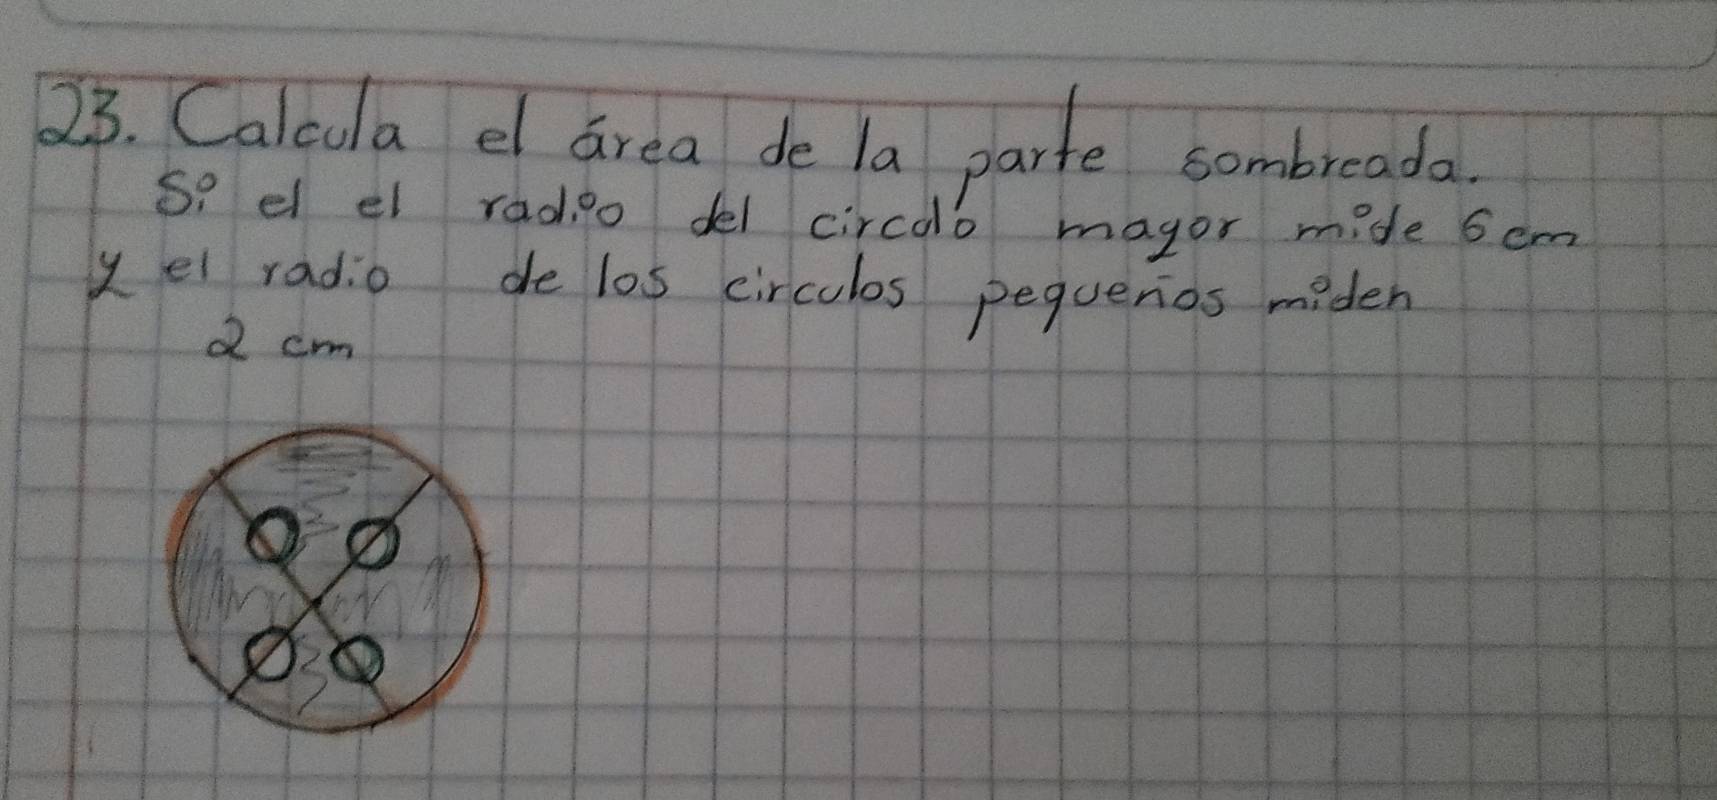 23. Calcula el área de la parte sombreada.
Si el el radio del circulo mayor mide 6 cm
y el radio de los circulos pequeños miden
2 cm